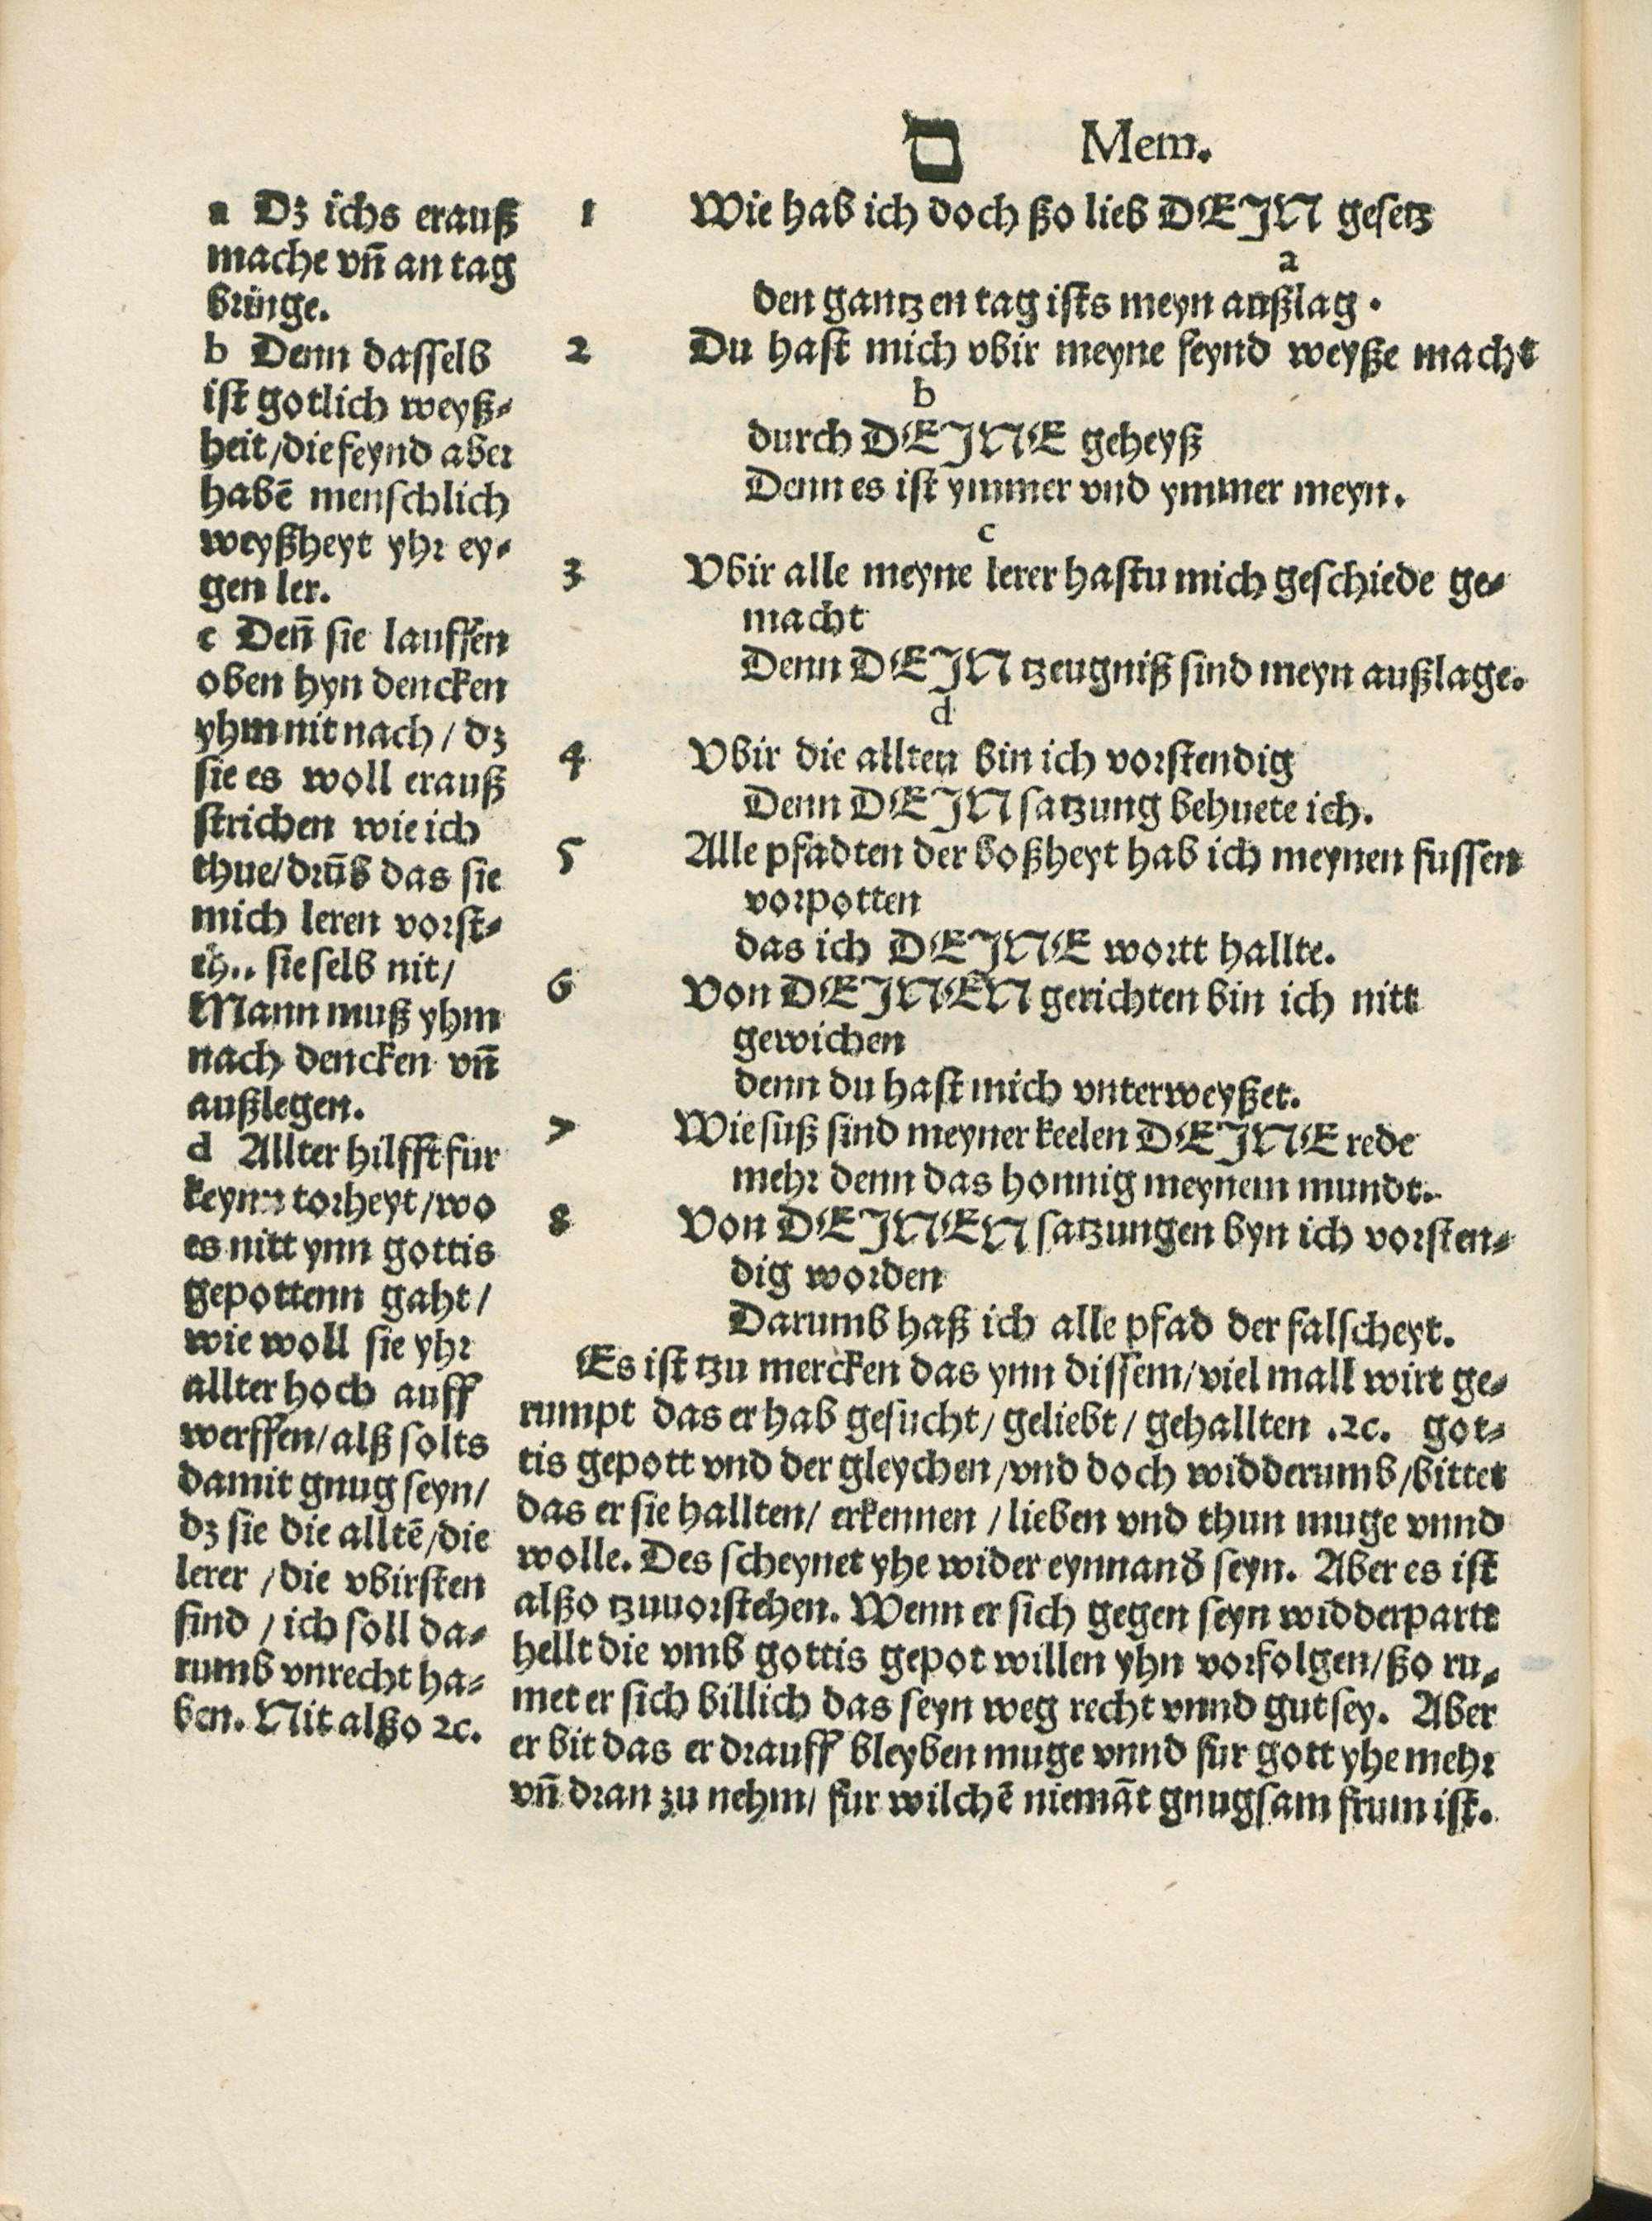 ם Mem.
a Dz ichs erauß
mache vn̄ an tag
bringe.
b Denn dasselb
ist gotlich weyß⸗
heit/die feynd aber
habē menschlich
weyßheyt yhr ey⸗
gen ler.
c Den̄ sie lauffen
oben hyn dencken
yhm nit nach / dz
sie es woll erauß
strichen wie ich
thue/drūb das sie
mich leren vorst⸗
sie selb nit/
Mann muß yhm
nach dencken vn̄
außlegen.
d Allter hilfft fur
torheyt/wo
es nitt ynn gottis
gepottenn gaht/
wie woll sie yhr
allter hoch auff
werffen/alß solts
damit gnug seyn/
dz sie die alltē/die
lerer /die vbirsten
sind / ich soll da⸗
rumb vnrecht ha⸗
ben. Nit alßo ꝛc.
1 Wie hab ich doch ßo lieb DEJN gesetz
a
den gantzen tag ists meyn außlag.
2 Du hast mich vbir meyne feynd weyße macht
b
durch DEJNE geheyß
Denn es ist ymmer vnd ymmer meyn.
c
3 Vbir alle meyne lerer hastu mich geschiede ge⸗
macht
Denn DEJN tzeugniß sind meyn außlage.
d
4 Vbir die allten bin ich vorstendig
Denn DEJN satzung behuete ich.
5 Alle pfadten der boßheyt hab ich meynen fussen
vorpotten
das ich DEJNE wortt hallte.
6 Von DEJNEN gerichten bin ich nitt
gewichen
denn du hast mich vnterweyßet.
7 Wie suß sind meyner keelen DEJNE rede
mehr denn das honnig meynem mundt.
8 Von DEJNEN satzungen byn ich vorsten⸗
dig worden
Darumb haß ich alle pfad der falscheyt.
Es ist tzu mercken das ynn dissem/viel mall wirt ge⸗
rumpt das er hab gesucht/ geliebt/ gehallten .ꝛc. got⸗
tis gepott vnd der gleychen/vnd doch widderumb/bittet
das er sie hallten/ erkennen /lieben vnd thun muge vnnd
wolle. Des scheynet yhe wider eynnand̄ seyn. Aber es ist
alßo tzuuorstehen. Wenn er sich gegen seyn widderpartt
hellt die vmb gottis gepot willen yhn vorfolgen/ßo ru⸗
met er sich billich das seyn weg recht vnnd gut sey. Aber
er bit das er drauff bleyben muge vnnd fur gott yhe mehr
vn̄ dran zu nehm/ fur wilchē niemāt gnugsam frum ist.